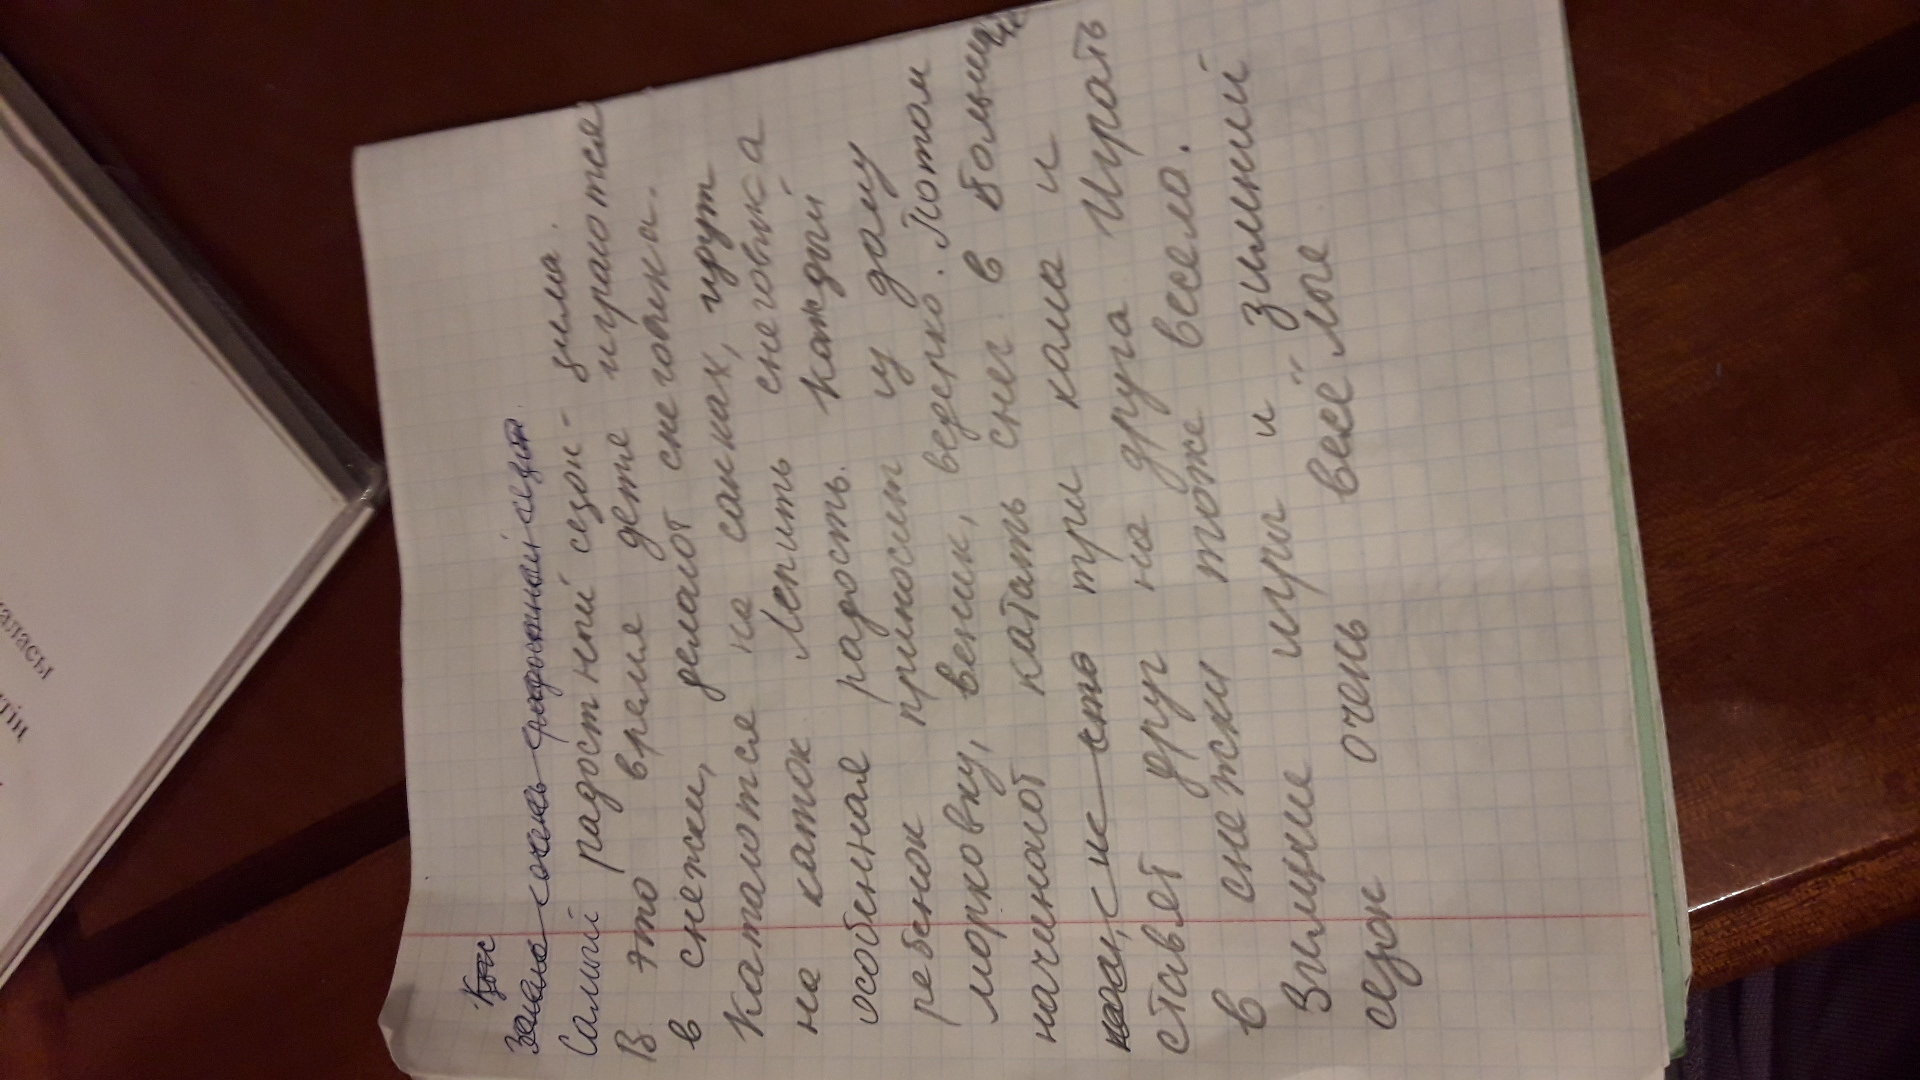 Қыс
Самый радостный сезон - зима.
В это время дети играются
в снежки, делают снеговика.
Катаются на санках, идут
на каток Лепить снеговика
особенная радость. Каждый
ребенок приносит из дому
морковку, веник, ведерко. Потом
начинают катать снег в большие
три кома и
ставят друг на друга. Играть
в снежки тоже весело.
Зимние игры и зимний
сезон очень весёлые
аласы
тің